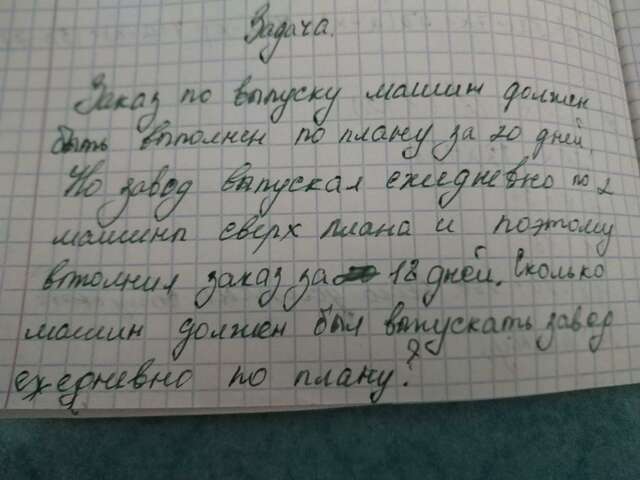 Задача.
Заказ по выпуску машин должен
быть выполнен по плану за 20 дней.
Но завод выпускал ежедневно по 2
машины сверх плана и поэтому
выполнил заказ за 18 дней. Сколько
машин должен был выпускать завод
ежедневно по плану?